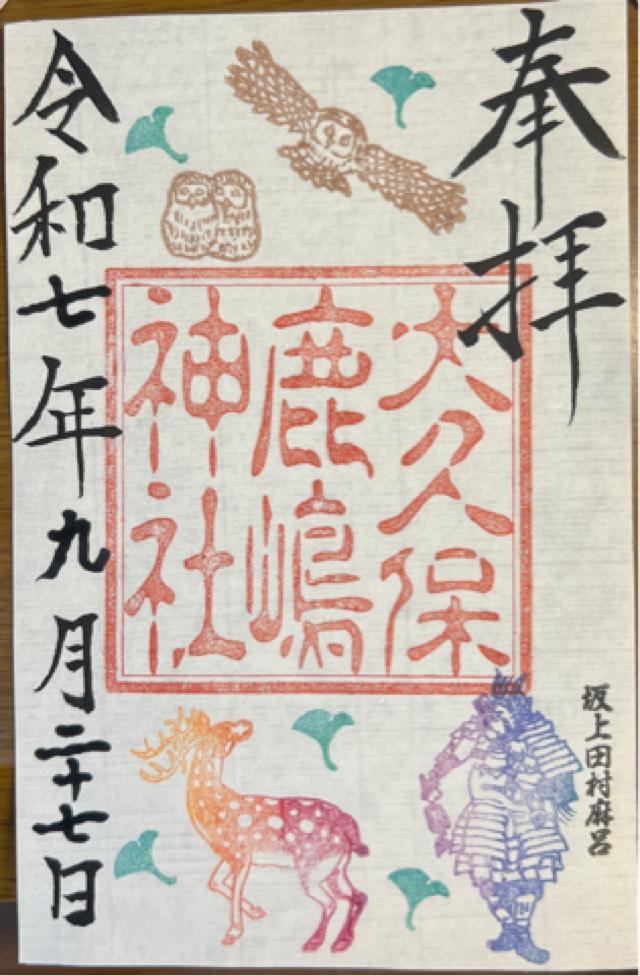 奉拝
大久保
鹿嶋
神社
坂上田村麻呂
令和七年九月二十七日